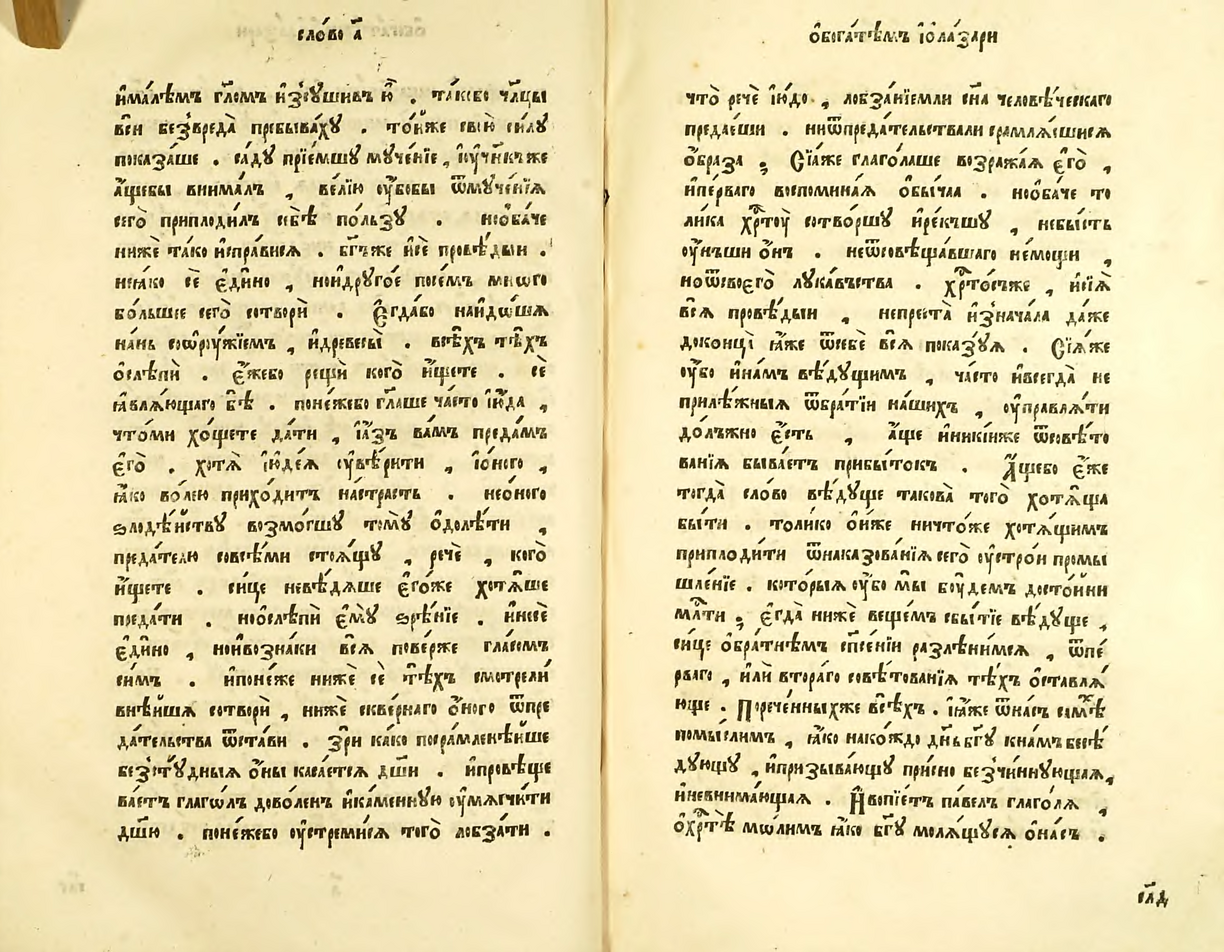 сло́во а҃
и҆ма́лѣмъ гл҃омъ и҆з̾сꙋшивъ ю҆̀ . та́ково чл҃цы
вси без̾вреда̀ пребыва́хꙋ . то́йже свою̀ си́лꙋ
показа́ше . са́дꙋ прїе́мшꙋ мꙋче́нїе , и҆ꙋ҆чн҃къже
а҆́щебы внима́лъ , ве́лїю ᲂу҆́бобы ѿмꙋче́нїѧ
сего̀ приплоди́лъ себѣ̀ по́льзꙋ . но҆ѻ҆ба́че
нижѐ та́ко и҆спра́висѧ . бг҃ъже и҆сѐ провѣ́дыи .
нсѧ́ко сѐ є҆ди́но , нои҆дрꙋго́е посе́мъ мно́го
бо́льшее сего̀ сотворѝ . Є҆гда́бо наидо́шѧ
на́нь соѡ҆рꙋ́жїемъ , и҆древесы̀ . всѣ́хъ тѣ́хъ
ѻ҆слѣпѝ . є҆́жебо рещѝ кого̀ и҆́щете . сѐ
ꙗ҆влѧ́ющаго бѣ̀ . поне́жебо гл҃аше ча́сто і҆ю́да ,
что́ми хо́щете да́ти , і҆а҆́зъ ва́мъ преда́мъ
є҆го̀ . хотѧ̀ і҆ꙋде́ѧ ᲂу҆вѣ́рити , і҆ѻ҆́ного ,
ꙗ҆́ко во́лею прихо́дитъ на́страсть . неѻ҆́ного
ѕлодѣ́йствꙋ возмо́гшꙋ томꙋ̀ ѻ҆долѣ́ти ,
преда́телю совсѣ́ми стоѧ́щꙋ , речѐ , кого̀
и҆́щете . си́це невѣ́дѧше є҆го́же хотѧ́ше
преда́ти . ноѻ҆слѣпѝ є҆мꙋ̀ ѕрѣ́нїе . и҆несѐ
є҆ди́но , нои҆вознакѝ всѧ̀ пове́рже гла́сомъ
си́мъ . и҆поне́же нижѐ сѐ тѣ́хъ смотре́ли
внѣ́йшѧ сотворѝ , нижѐ скве́рнаго ѻ҆́ного ѿпре
да́тельства ѿста́ви . зрѝ ка́ко посрамле́нѣйше
без̾стꙋ́дныѧ ѻ҆́ны каса́етсѧ дш҃и . и҆провѣще
ва́етъ глаго́лъ дово́ленъ и҆ка́меннꙋю ᲂу҆мѧгчи́ти
дш҃ю . поне́жебо ᲂу҆стреми́сѧ того̀ лобза́ти .
ѻ҆бога́тѣмъ і҆ѻ҆ла́зари
что̀ речѐ і҆ю́до , лобза́нїемли сн҃а человѣ́ческаго
предае́ши . ниѿпреда́тельствали срамлѧ́ешисѧ
ѻ҆́браза ; Сїѧ́же глаго́лаше возража́ѧ є҆го̀ ,
и҆пе́рваго воспомина́ѧ ѻ҆бы́чаа . ноѻ҆ба́че то
ли́ка хрⷭ҇тоу сотво́ршꙋ и҆ре́кшꙋ , небы́сть
ᲂу҆́ньши ѻ҆́нъ . неѿсовѣща́вшаго не́мощи ,
ноѿсвоего̀ лꙋка́въства . хрⷭ҇то́съже , и҆сїѧ̀
всѧ̀ провѣ́дыи , непреста̀ и҆знача́ла да́же
доконца̀ ꙗ҆́же ѿсебѐ всѧ̀ показꙋ́ѧ . Сїѧ́же
ᲂу҆́бо и҆на́мъ вѣ́дꙋщимъ , ча́сто и҆всегда̀ не
прилѣ́жныѧ ѿбра́тїи на́шихъ , ᲂу҆правлѧ́ти
до́лъжно є҆́сть , а҆́ще и҆ники́иже ѿсовѣ́то
ва́нїѧ быва́етъ прибы́токъ . А҆́щебо є҆́же
тогда̀ сло́во вѣ́дꙋще такова̀ того̀ хотѧ́ща
бы́ти . то́лико ѻ҆́ниже ничто́же хотѧ́щимъ
приплоди́ти ѿнаказова́нїѧ сего̀ ᲂу҆стро́и промы
шле́нїе . которы́ѧ ᲂу҆́бо мы̀ бꙋ́демъ досто́йни
млⷭ҇ти ; є҆гда̀ нижѐ веще́мъ сбы́тїе вѣ́дꙋще ,
си́це ѻ҆бра́тнѣмъ сп҃се́нїи разлѣни́мсѧ , ѿпе́
рваго , и҆лѝ втора́го совѣ́тованїѧ тѣ́хъ ѻ҆ставлѧ́
юще . Порече́нныхже всѣ́хъ . і҆ꙗ҆́же ѿна́съ самѣ́хъ
помы́слимъ , ꙗ҆́ко нако́ждо дн҃ь бг҃ꙋ кна́мъ бесѣ́
дꙋющꙋ , и҆призыва́ющꙋ при́сно безчи́ннꙋющаѧ ,
и҆невнима́ющаѧ . И҆вопїе́тъ па́велъ глаго́лѧ ,
ѻ҆хрⷭ҇тѣ̀ мо́лимъ ꙗ҆́ко бг҃ꙋ молѧ́щꙋсѧ ѻ҆на́съ .
сл҃д